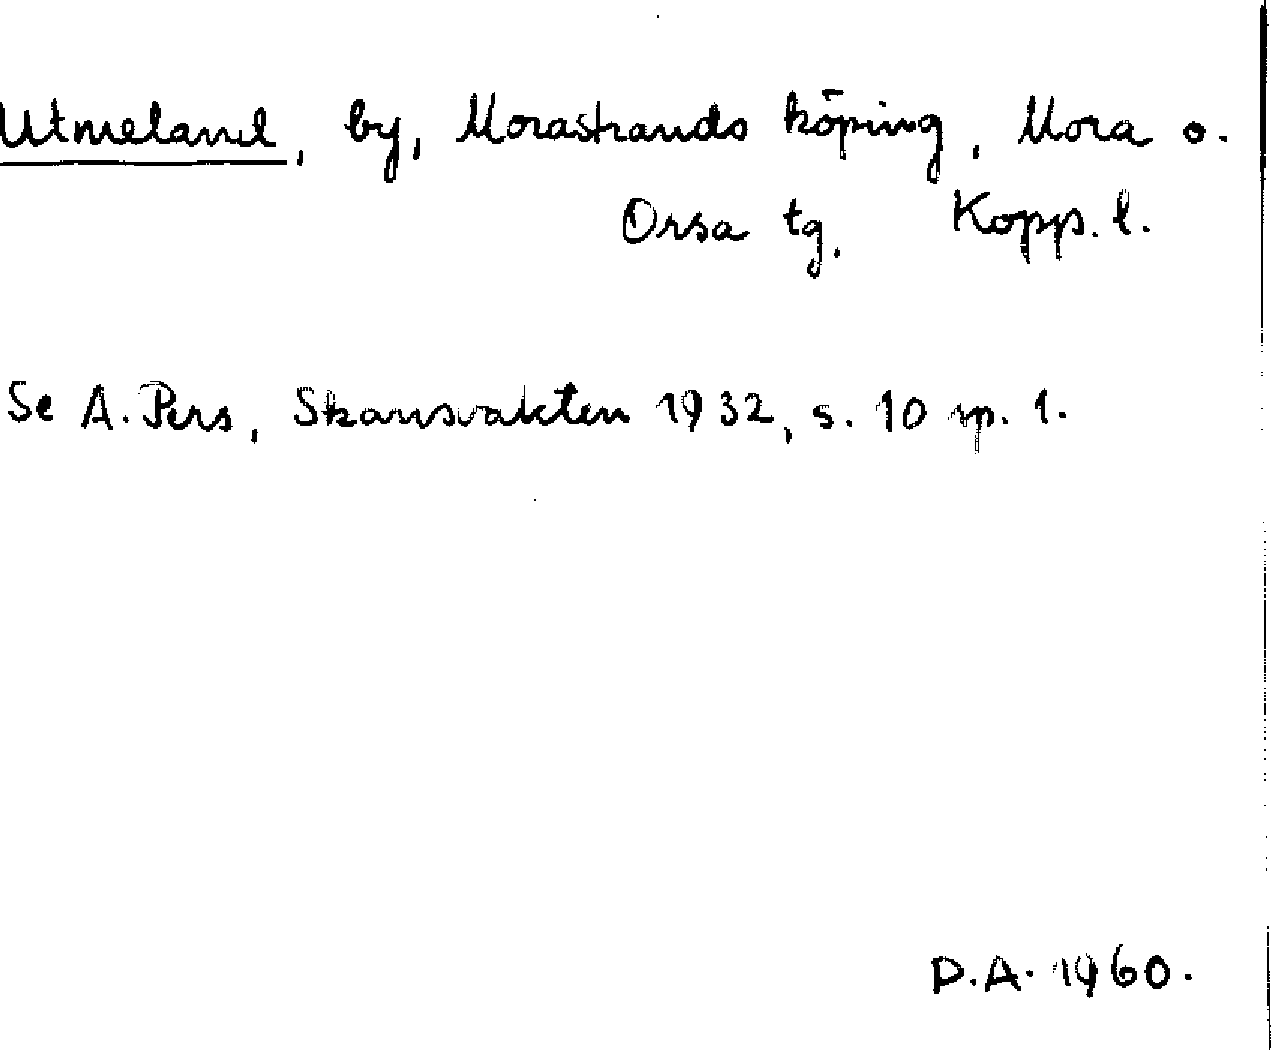 Utmeland, by, Morastrands köping, Mora o.
Orsa tg. Kopp. l.
Se A. Pers, Skansvakten 1932, s. 10 sp. 1.
D.A. 1960.